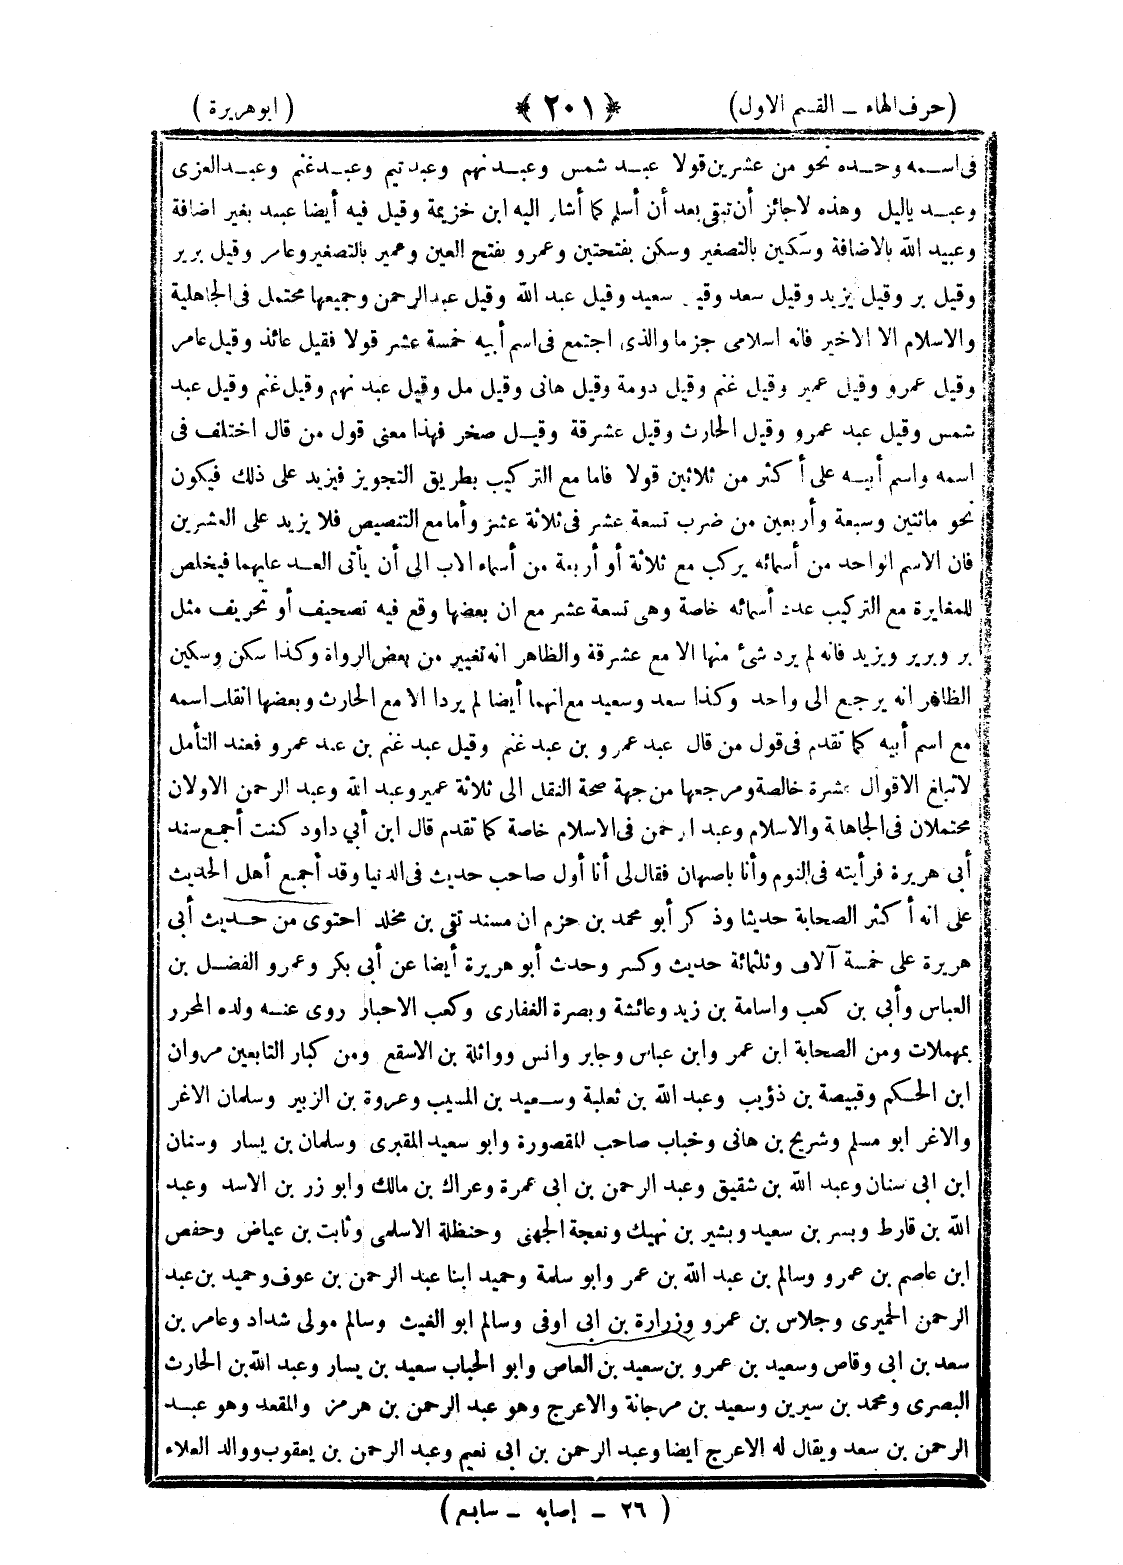 (حرف الهاء ــ القسم الاول) ﴿٢٠١﴾ (ابو هريرة)
فى اســمه وحــده نحو من عشرين قولا عبــد شمس وعبــد نهم وعبد تيم وعبــد غنم وعبــد العزى
وعبــد ياليل وهذه لا جائز أن تبقى بعد أن أسلم كما أشار اليه ابن خزيمة وقيل فيه أيضا عبيد بغير اضافة
وعبيد الله بالاضافة وسكين بالتصغير وسكن بفتحتين وعمرو بفتح العين وعمير بالتصغير وعامر وقيل برير
وقيل بر وقيل يزيد وقيل سعد وقيل سعيد وقيل عبد الله وقيل عبد الرحمن وجميعها محتمل فى الجاهلية
والاسلام الا الاخير فانه اسلامى جزما والذى اجتمع فى اسم أبيه خمسة عشر قولا فقيل عائذ وقيل عامر
وقيل عمرو وقيل عمير وقيل غنم وقيل دومة وقيل هانى وقيل مل وقيل عبد نهم وقيل غنم وقيل عبد
شمس وقيل عبد عمرو وقيل الحارث وقيل عشرقة وقيــل صخر فهذا معنى قول من قال اختلف فى
اسمه واسم أبيــه على أكثر من ثلاثين قولا فاما مع التركيب بطريق التجويز فيزيد على ذلك فيكون
نحو مائتين وسبعة وأربعين من ضرب تسعة عشر فى ثلاثة عشر وأما مع التنصيص فلا يزيد على العشرين
فان الاسم الواحد من أسمائه يركب مع ثلاثة أو أربعة من أسماء الاب الى أن يأتى العد عليهما فيخلص
للمغايرة مع التركيب عدد أسمائه خاصة وهى تسعة عشر مع ان بعضها وقع فيه تصحيف أو تحريف مثل
بر وبرير ويزيد فانه لم يرد شئ منها الا مع عشرقة والظاهر انه تغيير من بعض الرواة وكذا سكن وسكين
الظاهر انه يرجع الى واحد وكذا سعد وسعيد مع انهما أيضا لم يردا الا مع الحارث وبعضها انقلب اسمه
مع اسم أبيه كما تقدم فى قول من قال عبد عمرو بن عبد غنم وقيل عبد غنم بن عبد عمرو فعند التأمل
لا تبلغ الاقوال عشرة خالصة ومرجعها من جهة صحة النقل الى ثلاثة عمير وعبد الله وعبد الرحمن الاولان
محتملان فى الجاهلية والاسلام وعبد الرحمن فى الاسلام خاصة كما تقدم قال ابن أبي داود كنت أجمع سند
أبى هريرة فرأيته فى النوم وأنا باصبهان فقال لى أنا أول صاحب حديث فى الدنيا وقد أجمع أهل الحديث
على انه أكثر الصحابة حديثا وذكر أبو محمد بن حزم ان مسند تقى بن مخلد احتوى من حــديث أبي
هريرة على خمسة آلاف وثلثمائة حديث وكسر وحدث أبو هريرة أيضا عن أبي بكر وعمرو الفضــل بن
العباس وأبي بن كعب واسامة بن زيد وعائشة وبصرة الغفارى وكعب الاحبار روى عنــه ولده المحرر
بمهملات ومن الصحابة ابن عمر وابن عباس وجابر وانس ووائلة بن الاسقع ومن كبار التابعين مروان
ابن الحكم وقبيصة بن ذؤيب وعبد الله بن ثعلبة وسـعيد بن المسيب وعروة بن الزبير وسلمان الاغر
والاغر ابو مسلم وشريح بن هانى وخباب صاحب المقصورة وابو سعيد المقبرى وسلمان بن يسار وسنان
ابن ابى سنان وعبد الله بن شقيق وعبد الرحمن بن ابى عمرة وعراك بن مالك وابو زر بن الاسد وعبد
الله بن قارط وبسر بن سعيد وبشير بن نهيك ونعجة الجهنى وحنظلة الاسلمى وثابت بن عياض وحفص
ابن عاصم بن عمرو وسالم بن عبد الله بن عمر وابو سلمة وحميد ابنا عبد الرحمن بن عوف وحميد بن عبد
الرحمن الحميرى وجلاس بن عمرو وزرارة بن ابى اوفى وسالم ابو الغيث وسالم مولى شداد وعامر بن
سعد بن ابى وقاص وسعيد بن عمرو بن سعيد بن العاص وابو الحباب سعيد بن يسار وعبد الله بن الحارث
البصرى ومحمد بن سيرين وسعيد بن مرجانة والاعرج وهو عبد الرحمن بن هرمز والمقعد وهو عبــد
الرحمن بن سعد ويقال له الاعرج ايضا وعبد الرحمن بن ابى نعيم وعبد الرحمن بن يعقوب ووالد العلاء
(٢٦ ــ إصابه ــ سابع)